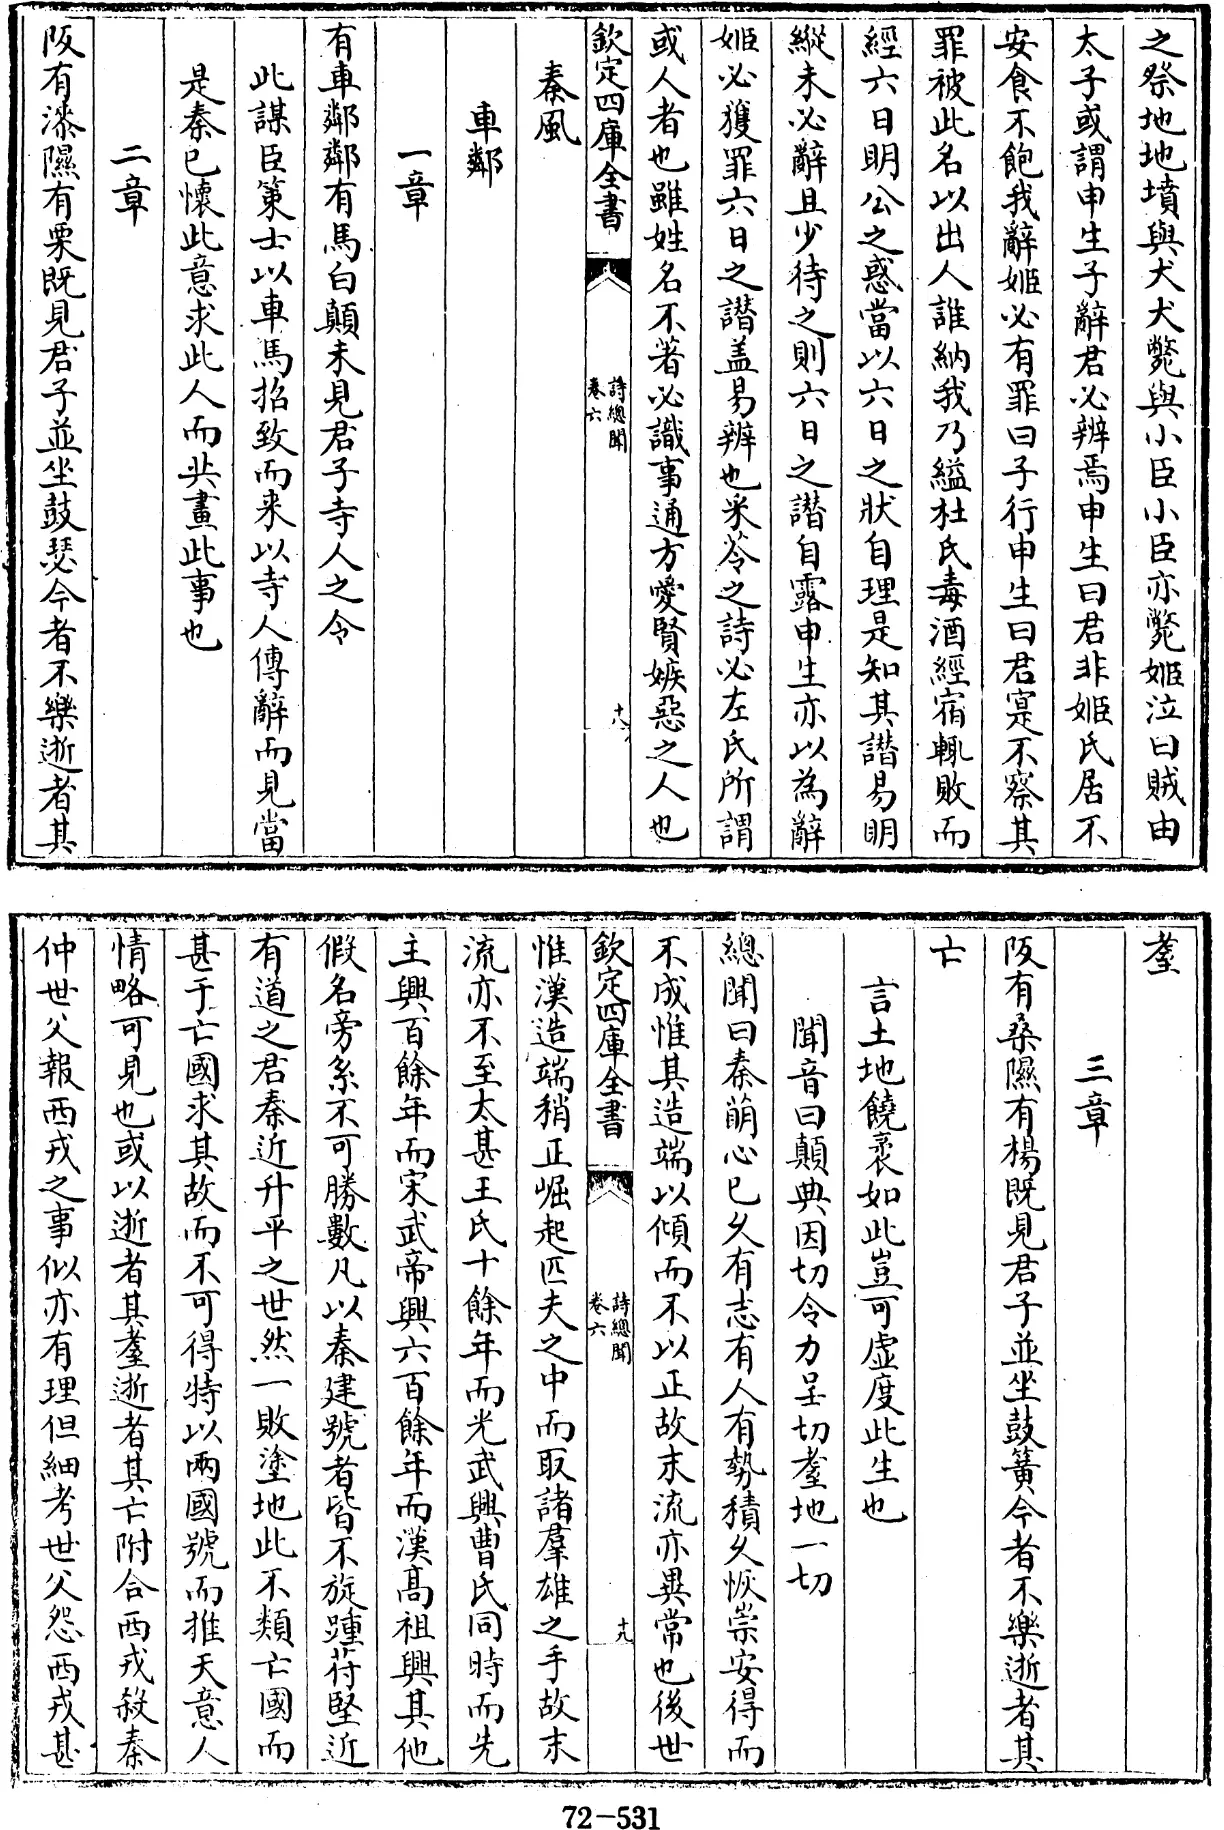 之祭地地墳與犬犬斃與小臣小臣亦斃姬泣曰賊由
太子或謂申生子辭君必辨焉申生曰君非姬氏居不
安食不飽我辭姬必有罪曰子行申生曰君寔不察其
罪被此名以出人誰納我乃縊杜氏毒酒經宿輒敗而
經六日明公之惑當以六日之狀自理是知其譖易明
縱未必辭且少待之則六日之譖自露申生亦以為辭
姬必獲罪六日之譖盖易辨也采苓之詩必左氏所謂
或人者也雖姓名不著必識事通方愛賢嫉惡之人也
欽定四庫全書
詩總聞
卷六
十八
秦風
車鄰
一章
有車鄰鄰有馬白顛未見君子寺人之令
此謀臣策士以車馬招致而来以寺人傳辭而見當
是秦已懷此意求此人而共畫此事也
二章
阪有漆隰有栗既見君子並坐鼓瑟今者不樂逝者其
耋
三章
阪有桑隰有楊既見君子並坐鼓簧今者不樂逝者其
亡
言土地饒袤如此豈可虛度此生也
聞音曰顛典因切令力呈切耋地一切
總聞曰秦萌心已久有志有人有勢積久恢崇安得而
不成惟其造端以傾而不以正故末流亦異常也後世
欽定四庫全書
詩總聞
卷六
十九
惟漢造端稍正崛起匹夫之中而取諸羣雄之手故末
流亦不至太甚王氏十餘年而光武興曹氏同時而先
主興百餘年而宋武帝興六百餘年而漢髙祖興其他
假名旁系不可勝數凡以秦建號者皆不旋踵苻堅近
有道之君秦近升平之世然一敗塗地此不類亡國而
甚于亡國求其故而不可得特以兩國號而推天意人
情略可見也或以逝者其耋逝者其亡附合西戎殺秦
仲世父報西戎之事似亦有理但細考世父怨西戎甚
72-531